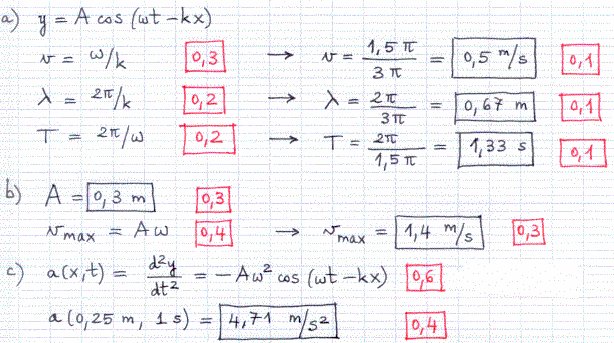 a) y = A cos (ωt - kx)
v = ω/k 0,3 → v = 1,5 π / 3 π = 0,5 m/s 0,1
λ = 2π/k 0,2 → λ = 2π / 3π = 0,67 m 0,1
T = 2π/ω 0,2 → T = 2π / 1,5 π = 1,33 s 0,1
b) A = 0,3 m 0,3
v max = A ω 0,4 → v max = 1,4 m/s 0,3
c) a(x,t) = d²y / dt² = - Aω² cos (ωt - kx) 0,6
a (0,25 m, 1 s) = 4,71 m/s² 0,4